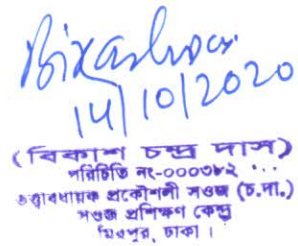 14/10/2020
(বিকাশ চন্দ্র দাস)
পরিচিতি নং-০০০৩৮২
তত্ত্বাবধায়ক প্রকৌশলী সওজ (চ.দা.)
সওজ প্রশিক্ষণ কেন্দ্র
মিরপুর, ঢাকা।